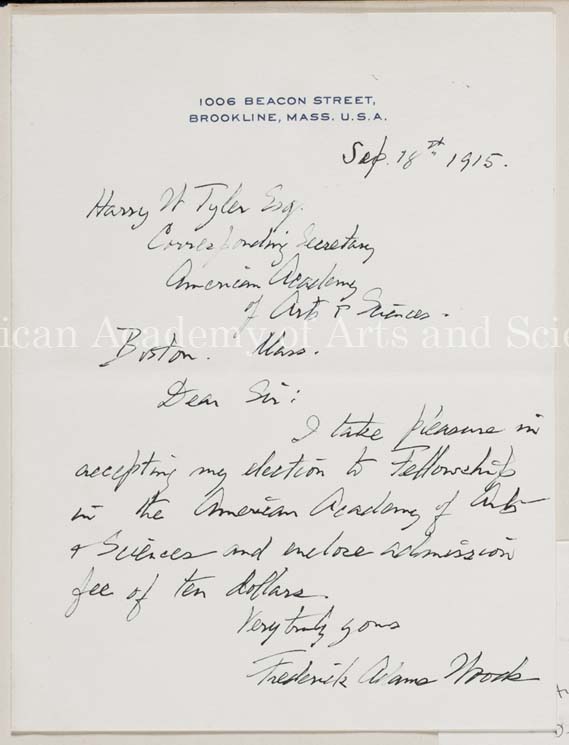 1006 BEACON STREET,
BROOKLINE, MASS. U.S.A.
Sep. 18th 1915.
Harry W Tyler Esq.
Corresponding Secretary
American Academy
of Arts & Sciences.
ican Academy of Arts and Scie
Boston. Mass.
Dear Sir:
I take pleasure in
accepting my election to Fellowship
in the American Academy of Arts
& Sciences and enclose admission
fee of ten dollars.
Very truly yours
Frederick Adams Woods